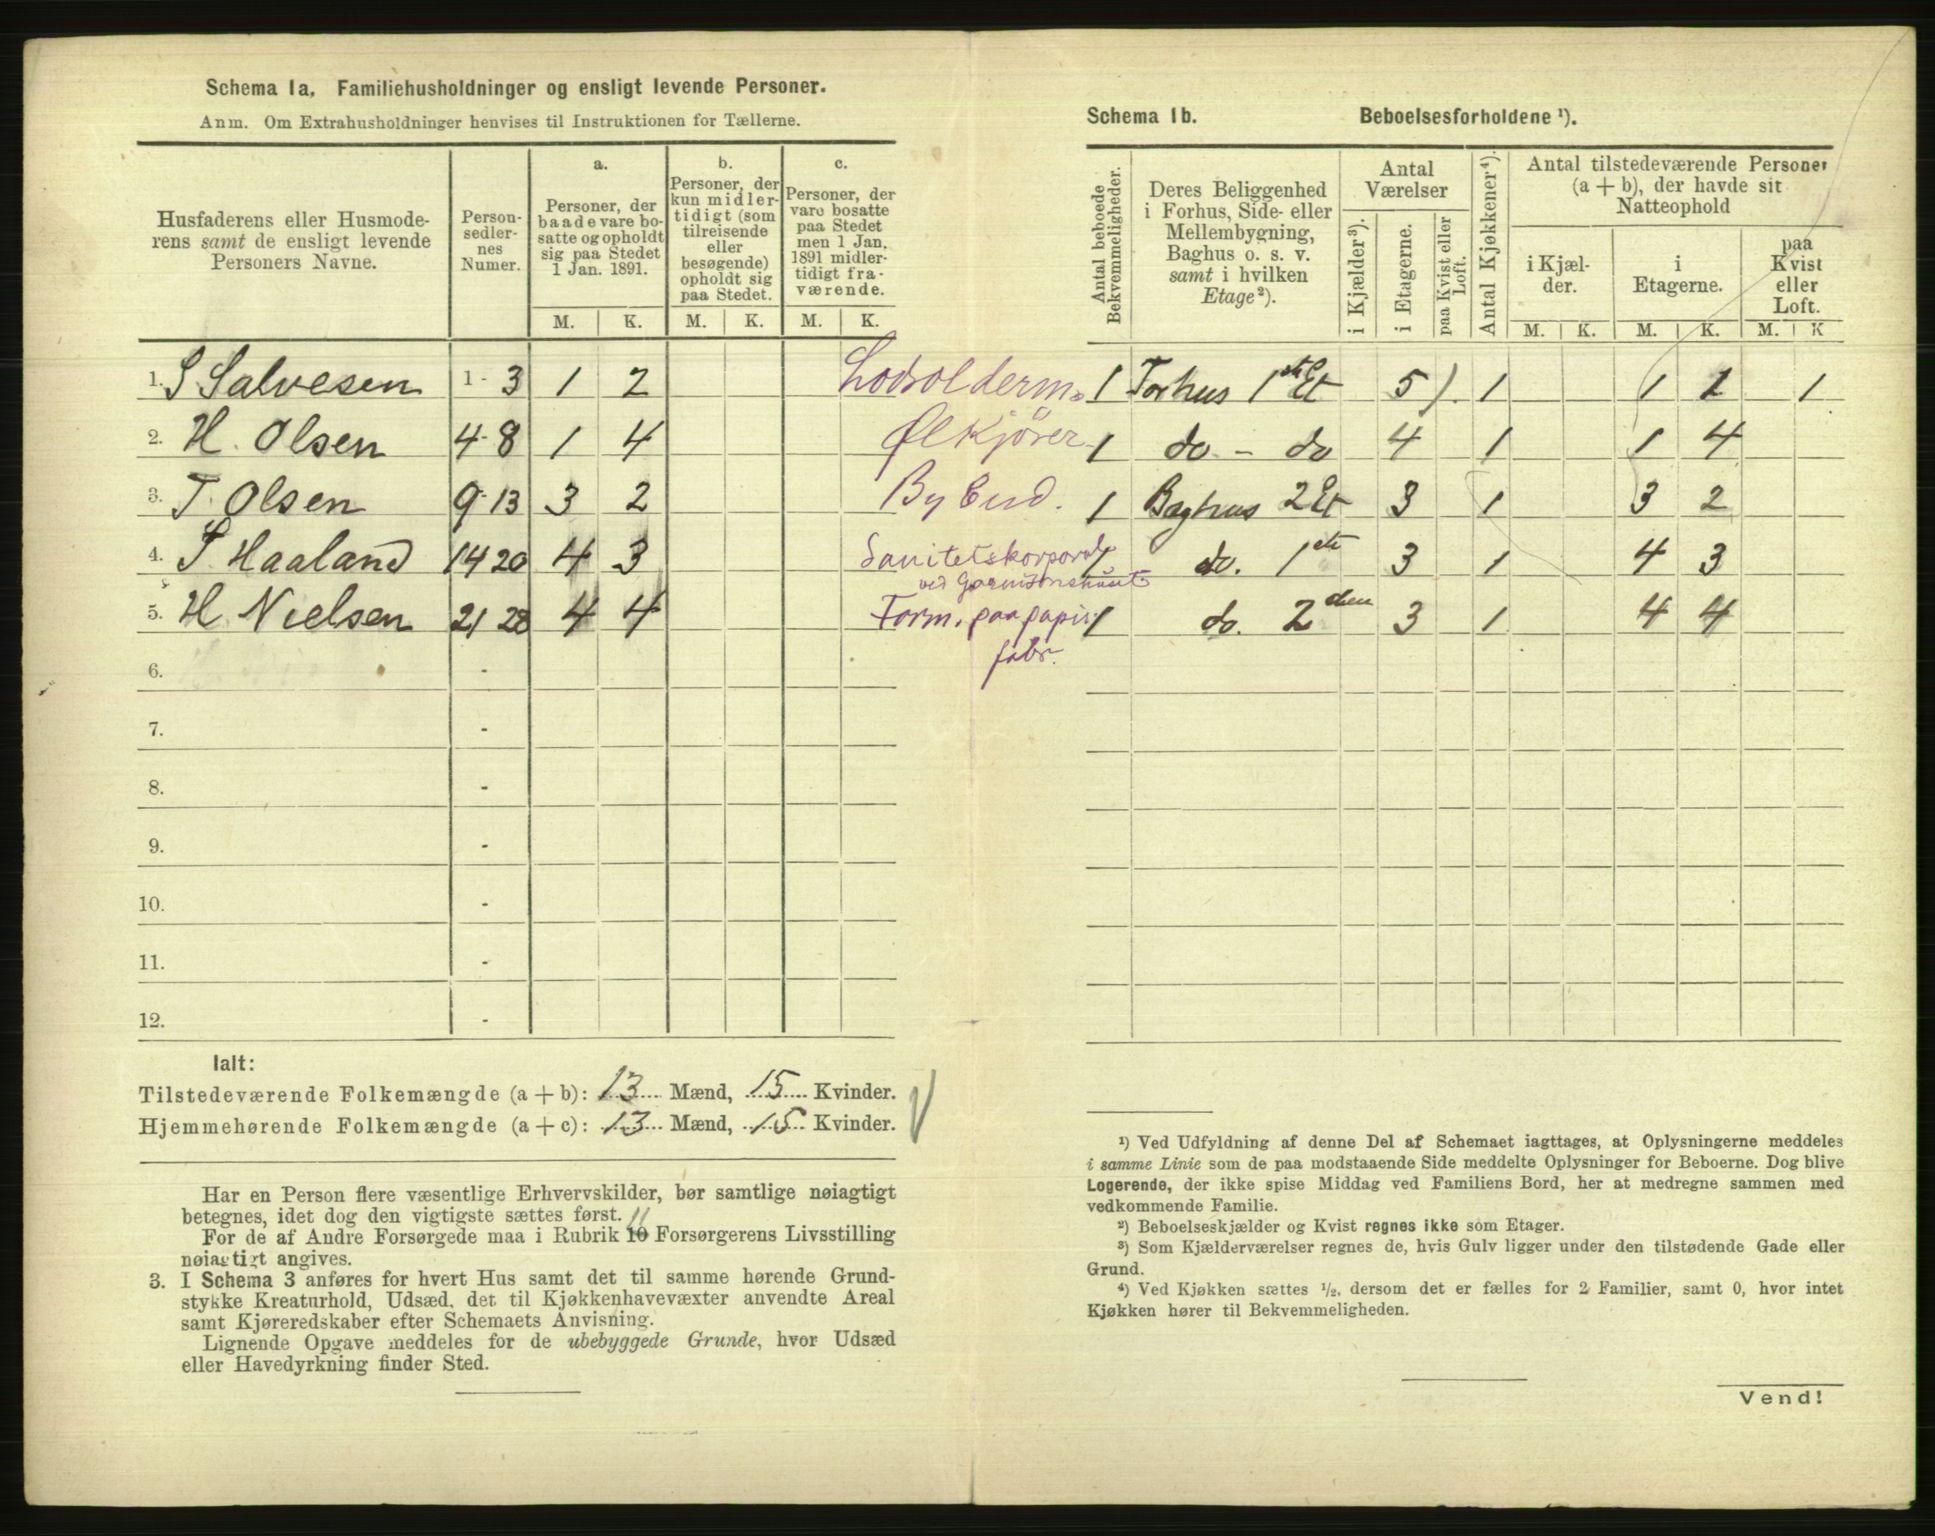 Schema 1a. Familiehusholdninger og ensligt levende Personer.
Anm. Om Extrahusholdninger henvises til Instruktionen for Tællerne.
Husfaderens eller Husmoderens samt de ensligt levende Personers Navne.
Personsedlernes Numer.
a.
Personer, der baade vare bosatte og opholdt sig paa Stedet 1 Jan. 1891.
b.
Personer, der kun midlertidigt (som tilreisende eller besøgende) opholdt sig paa Stedet.
c.
Personer, der vare bosatte paa Stedet men 1 Jan. 1891 midlertidigt fraværende.
M. K. M. K. M. K.
1. S Salvesen 1-3 1 2 Lodsolderm.
2. H. Olsen 4-8 1 4 Ølkjører
3. T. Olsen 9-13 3 2 By bud.
4. S. Haaland 14 20 4 3 Sanitetskorporal ved Garnisonshuset
5. H. Nielsen 21 28 4 4 Form. paa papir fabr.
6. -
7. -
8. -
9. -
10. -
11. -
12. -
Ialt:
Tilstedeværende Folkemængde (a + b): 13 Mænd, 15 Kvinder.
Hjemmehørende Folkemængde (a + c): 13 Mænd, 15 Kvinder.
Har en Person flere væsentlige Erhvervskilder, bør samtlige nøiagtigt
betegnes, idet dog den vigtigste sættes først.
11
For de af Andre Forsørgede maa i Rubrik 10 Forsørgerens Livsstilling
nøiagtigt angives.
3. I Schema 3 anføres for hvert Hus samt det til samme hørende Grund-
stykke Kreaturhold, Udsæd, det til Kjøkkenhavevæxter anvendte Areal
samt Kjøreredskaber efter Schemaets Anvisning.
Lignende Opgave meddeles for de ubebyggede Grunde, hvor Udsæd
eller Havedyrkning finder Sted.
Schema 1b. Beboelsesforholdene ¹).
Antal beboede Bekvemmeligheder.
Deres Beliggenhed i Forhus, Side- eller Mellembygning, Baghus o. s. v. samt i hvilken Etage ²).
Antal Værelser
i Kjælder ³).
i Etagerne.
paa Kvist eller Loft.
Antal Kjøkkener ⁴).
Antal tilstedeværende Personer (a + b), der havde sit Natteophold
i Kjælder.
i Etagerne.
paa Kvist eller Loft.
M. K. M. K. M. K
1 Forhus 1ste Et 5 1 1 1 1
1 do - do 4 1 1 4
1 Baghus 2 Et 3 1 3 2
1 do. 1ste 3 1 4 3
1 do. 2den 3 1 4 4
¹) Ved Udfyldning af denne Del af Schemaet iagttages, at Oplysningerne meddeles
i samme Linie som de paa modstaaende Side meddelte Oplysninger for Beboerne. Dog blive
Logerende, der ikke spise Middag ved Familiens Bord, her at medregne sammen med
vedkommende Familie.
²) Beboelseskjælder og Kvist regnes ikke som Etager.
³) Som Kjælderværelser regnes de, hvis Gulv ligger under den tilstødende Gade eller
Grund.
⁴) Ved Kjøkken sættes ½, dersom det er fælles for 2 Familier, samt 0, hvor intet
Kjøkken hører til Bekvemmeligheden.
Vend!